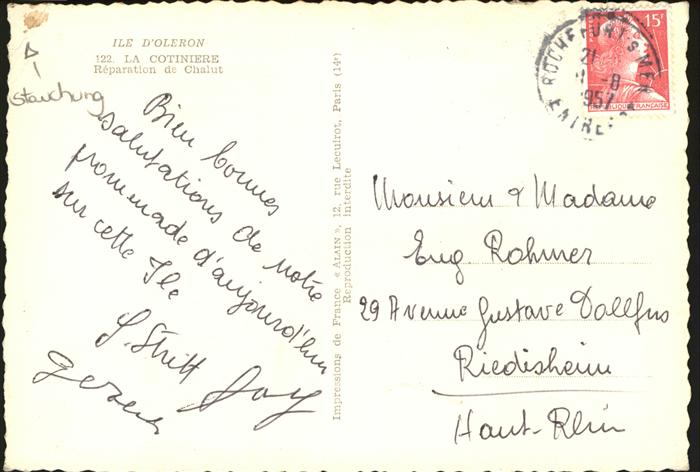 ILE D'OLERON
122. LA COTINIERE
Réparation de Chalut
Stauchung
Bien bonnes
salutations de notre
promenade d'aujourd'hui
sur cette Ile
Impressions de France « ALAIN », 12, rue Lecuirot, Paris (14e)
Reproduction Interdite
15F
ROCHEFORT S MER
21
-8
1957
Monsieur & Madame
Eug. Rohmer
29 Avenue Gustave Dollfus
Riedisheim
Haut-Rhin